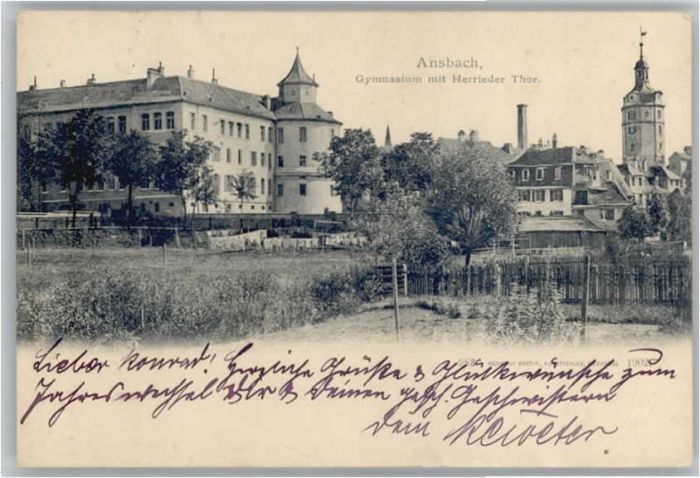 Ansbach,
Gymnasium mit Herrieder Thor.
Lieber Konrad! Herzliche Grüße & Glückwünsche zum
Jahreswechsel Dir & Deinen gesch. Geschwistern